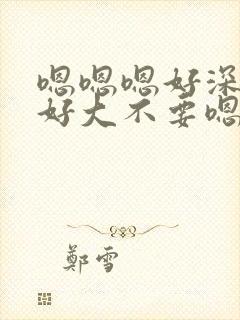 嗯嗯嗯好深
好大不要嗯
鄭雪